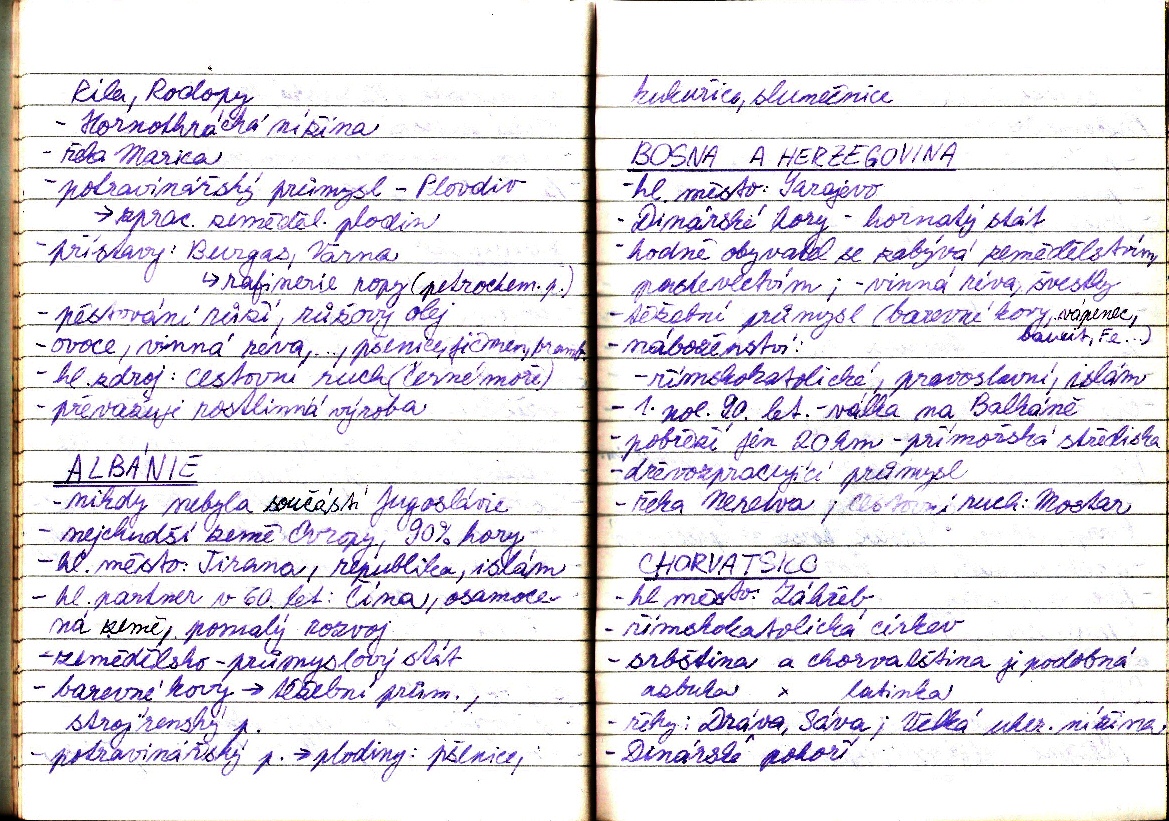 Rila, Rodopy
- Hornothrácká nížina
- řeka Marica
- potravinářský průmysl - Plovdiv
→ zprac. zeměděl. plodin
- přístavy: Burgas, Varna
↳ rafinerie ropy (petrochem. p.)
- pěstování růží, růžový olej
- ovoce, vinná réva, ..., pšenice, ječmen, bramb.
- hl. zdroj: cestovní ruch (Černé moře)
- převažuje rostlinná výroba
ALBÁNIE
- nikdy nebyla součástí Jugoslávie
- nejchudší země Evropy, 90% hory
- hl. město: Tirana, republika, islám
- hl. partner v 60. let: Čína, osamoce-
ná země, pomalý rozvoj
- zemědělsko-průmyslový stát
- barevné kovy → těžební prům.,
strojírenský p.
- potravinářský p. → plodiny: pšenice,
kukuřice, slunečnice
BOSNA A HERZEGOVINA
- hl. město: Sarajevo
- Dinárské hory - hornatý stát
- hodně obyvatel se zabývá zemědělstvím,
pastevectvím; - vinná réva, švestky
- těžební průmysl (barevné kovy, vápenec,
bauxit, Fe...)
- náboženství:
- římskokatolické, pravoslavní, islám
- 1. pol. 90. let. - válka na Balkáně
- pobřeží jen 20 km - přímořská střediska
- dřevozpracující průmysl
- řeka Neretva; cestovní ruch: Mostar
CHORVATSKO
- hl. město: Záhřeb
- římskokatolická církev
- srbština a chorvatština je podobná
azbuka × latinka
- řeky: Dráva, Sáva; Velká uher. nížina
- Dinárské pohoří